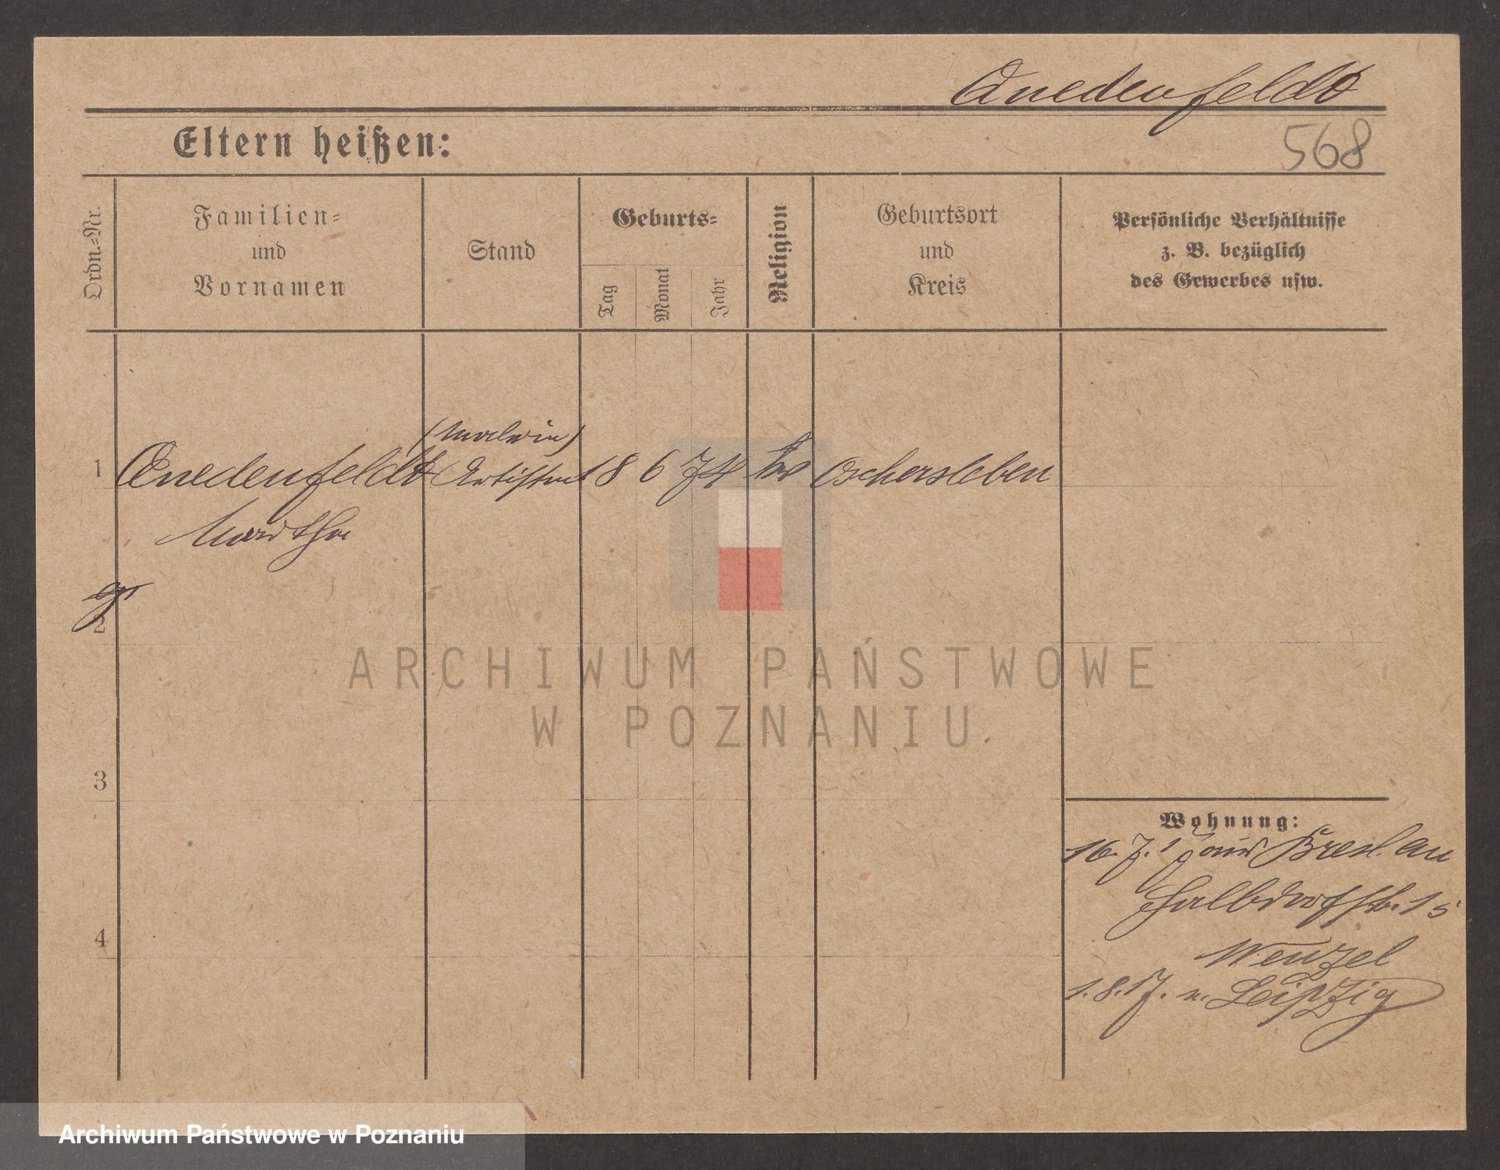 Quedenfeldt
568
Eltern heißen:
Ordn.-Nr.
Familien-
und
Vornamen
Stand
Geburts-
Tag
Monat
Jahr
Religion
Geburtsort
und
Kreis
Persönliche Verhältnisse
z. B. bezüglich
des Gewerbes usw.
1
Quedenfeldt
Artistin
18 6 74
Oschersleben
Martha
2
3
4
Wohnung:
aus Breslau
Halbdorfstr. 15
Wenzel
n. Leipzig
ARCHIWUM PAŃSTWOWE
W POZNANIU
Archiwum Państwowe w Poznaniu